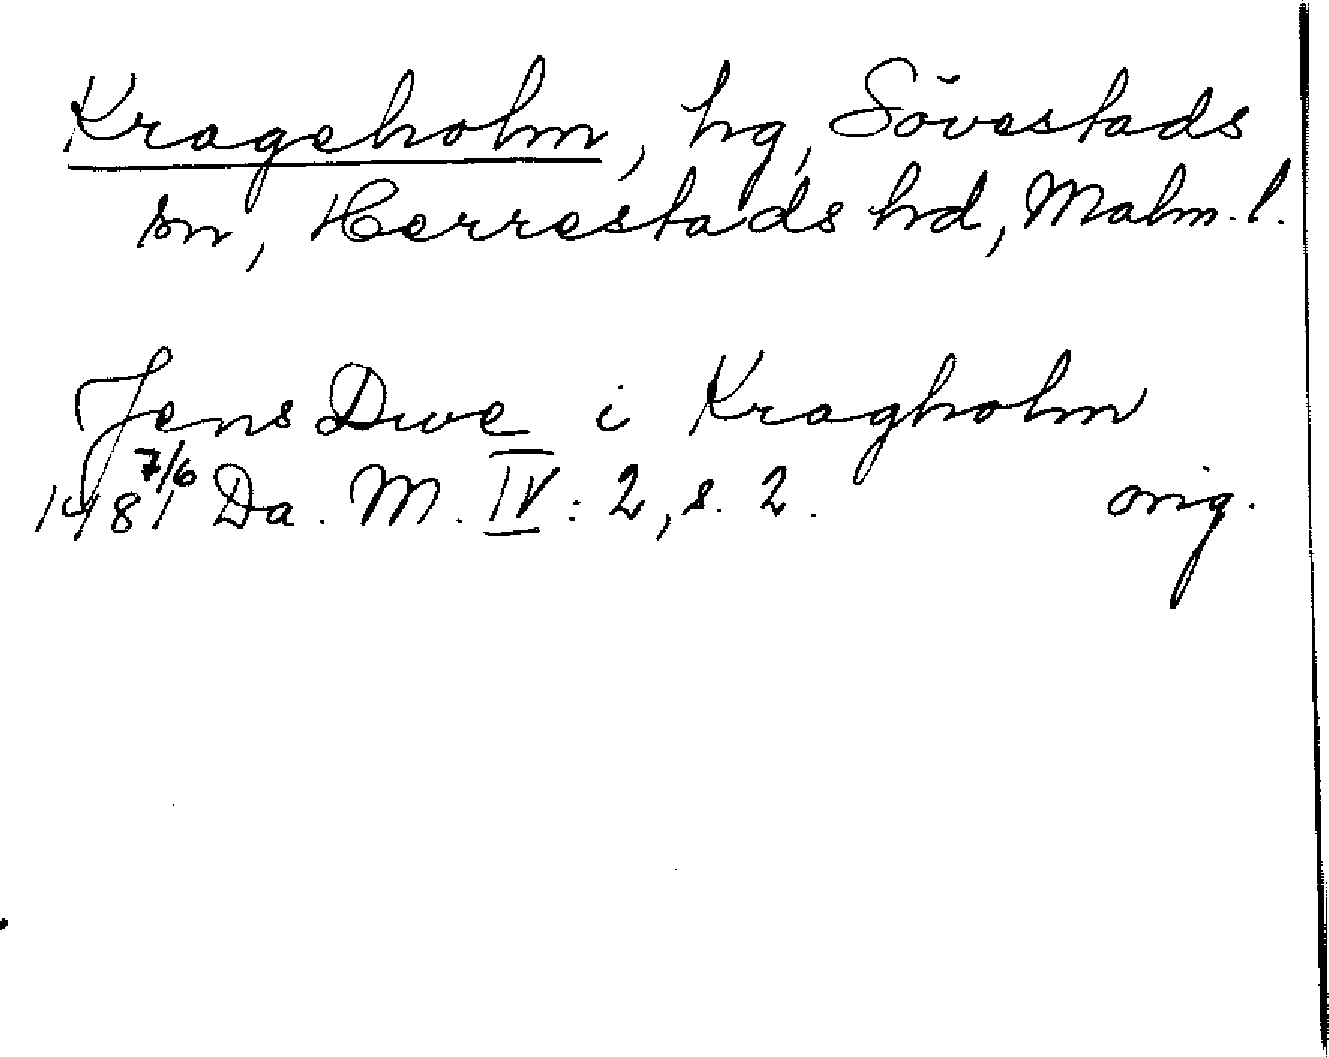 Krageholm, hg, Sövestads
sn, Herrestads hd, Malm. l.
Jens Dwe i Kragholm
1481 7/6 Da. M. IV: 2, s. 2. orig.